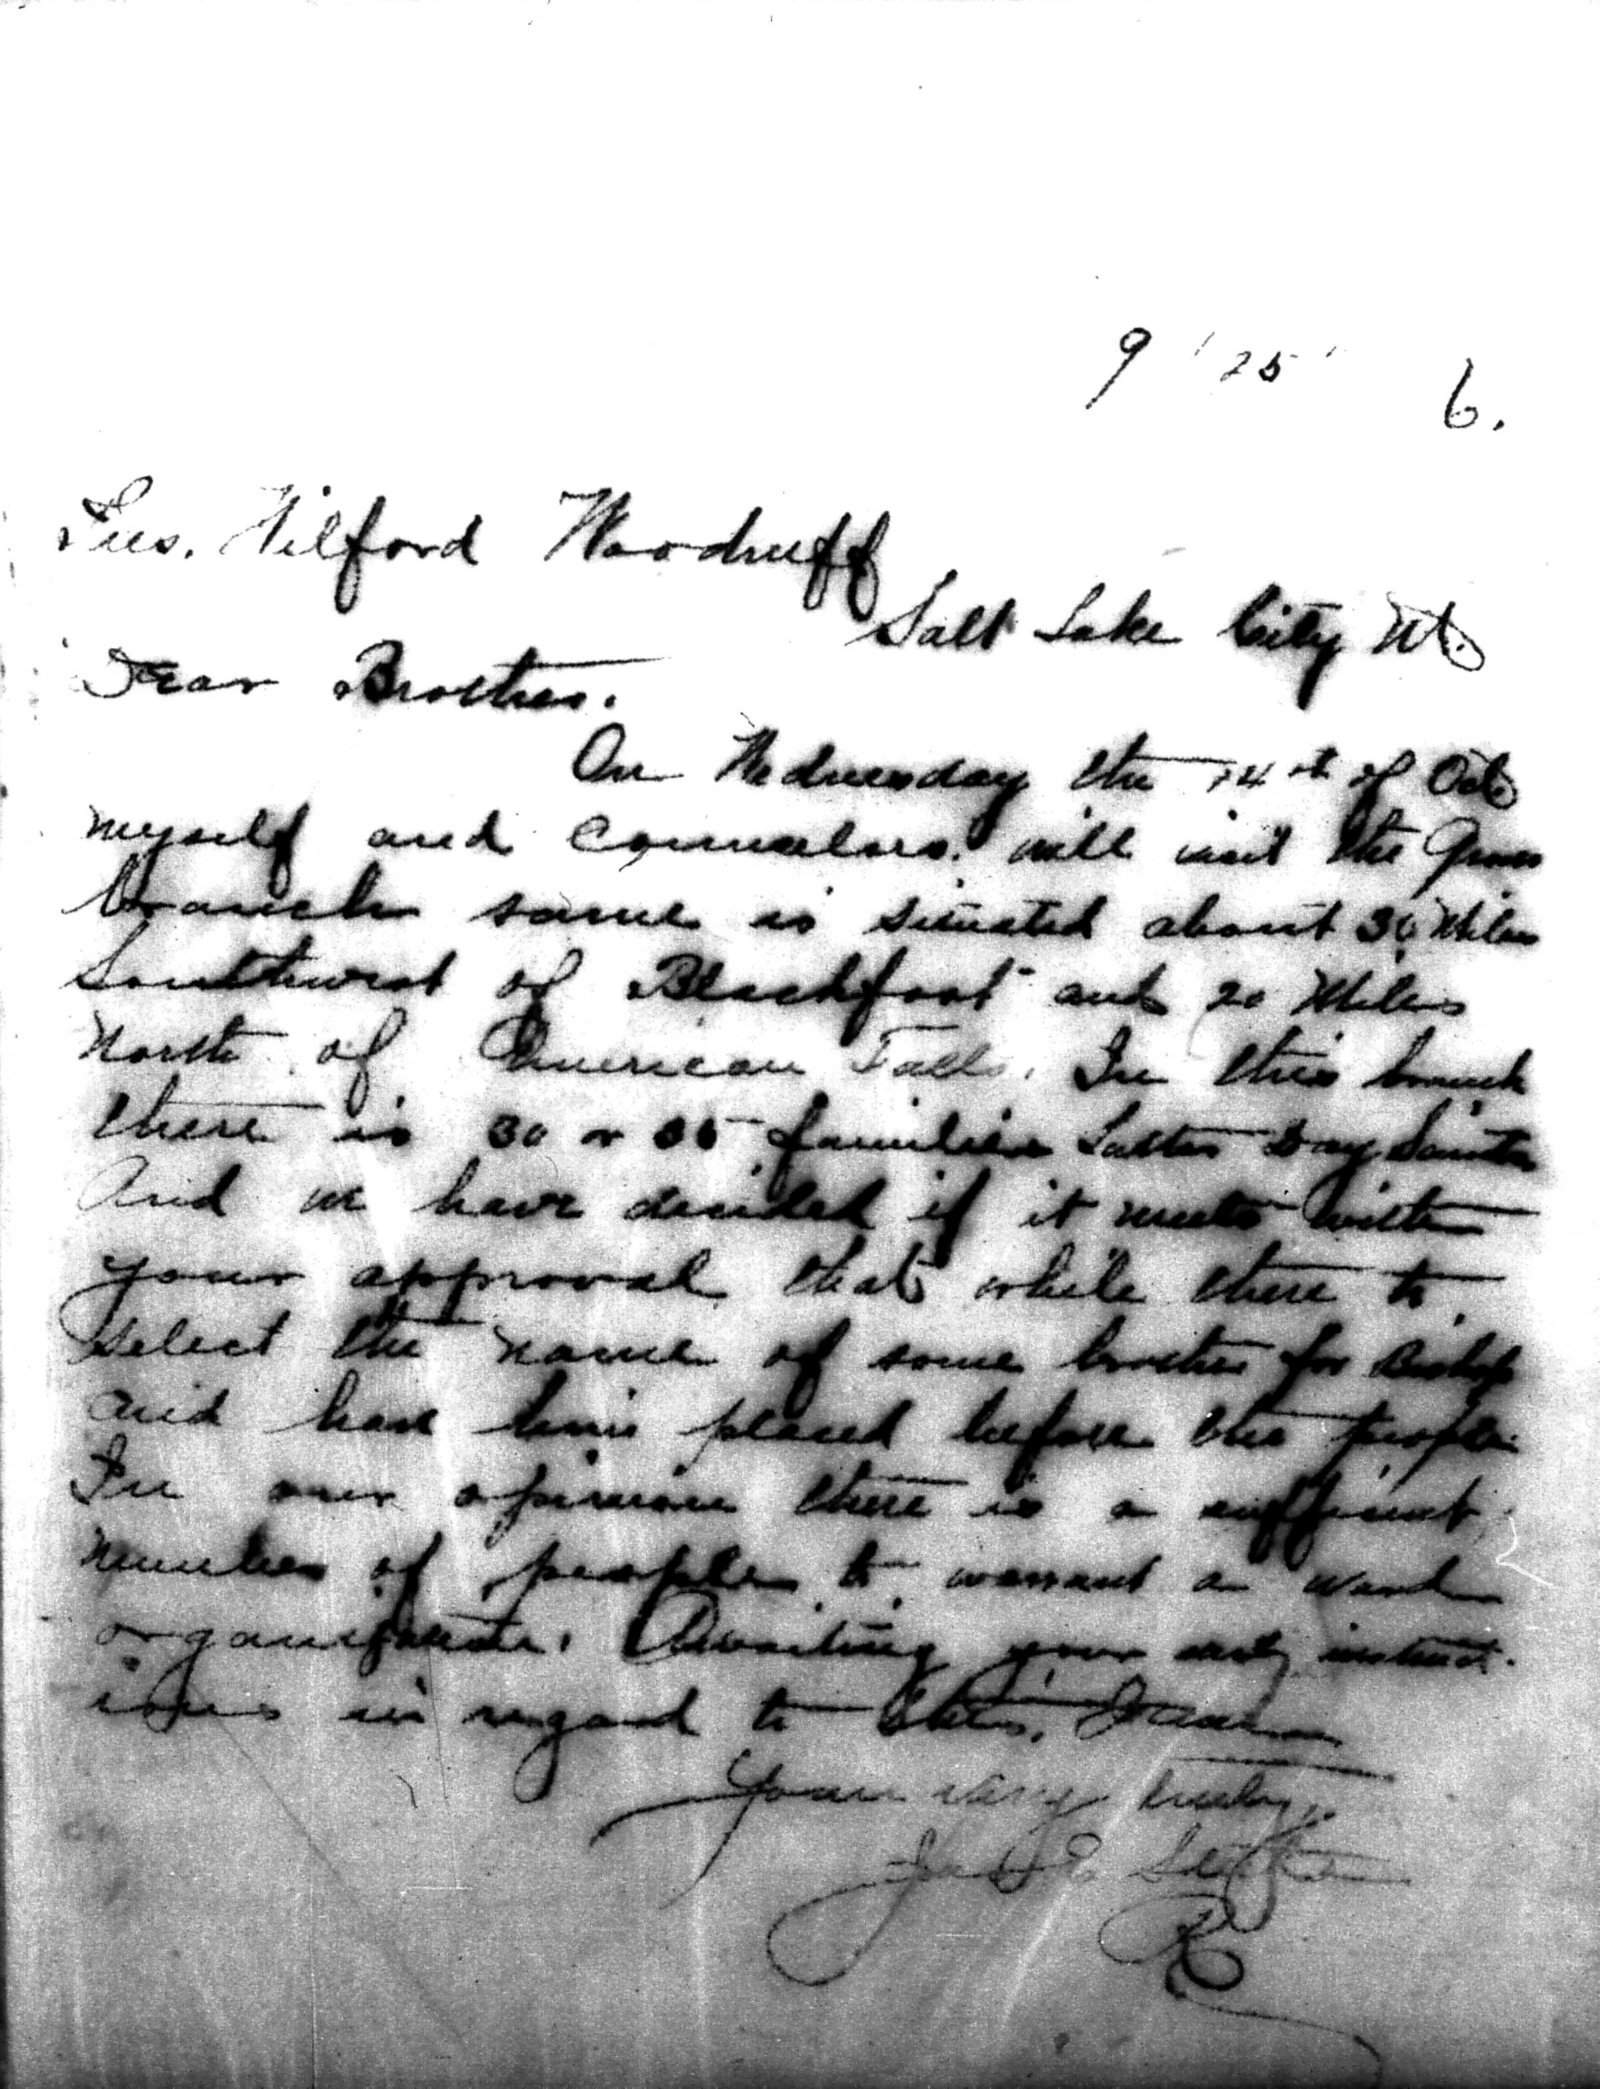 9 25 6.
Pres. Wilford Woodruff
Salt Lake City Ut.
Dear Brother.
On Wednesday the 14th of Oct
myself and Counselors. will visit the
branch same is situated about 30 Miles
Southwest of Blackfoot and 20 Miles
North of American Falls. In this branch
there is 30 or 35 families Latter Day Saints
And we have decided if it meets with
your approval that while there to
select the name of some brother for Bishop
and have him placed before the people.
In our opinion there is a sufficient
number of people to warrant a ward
organization. Awaiting your early instruct-
ions in regard to this, I am
Yours Very Truly,